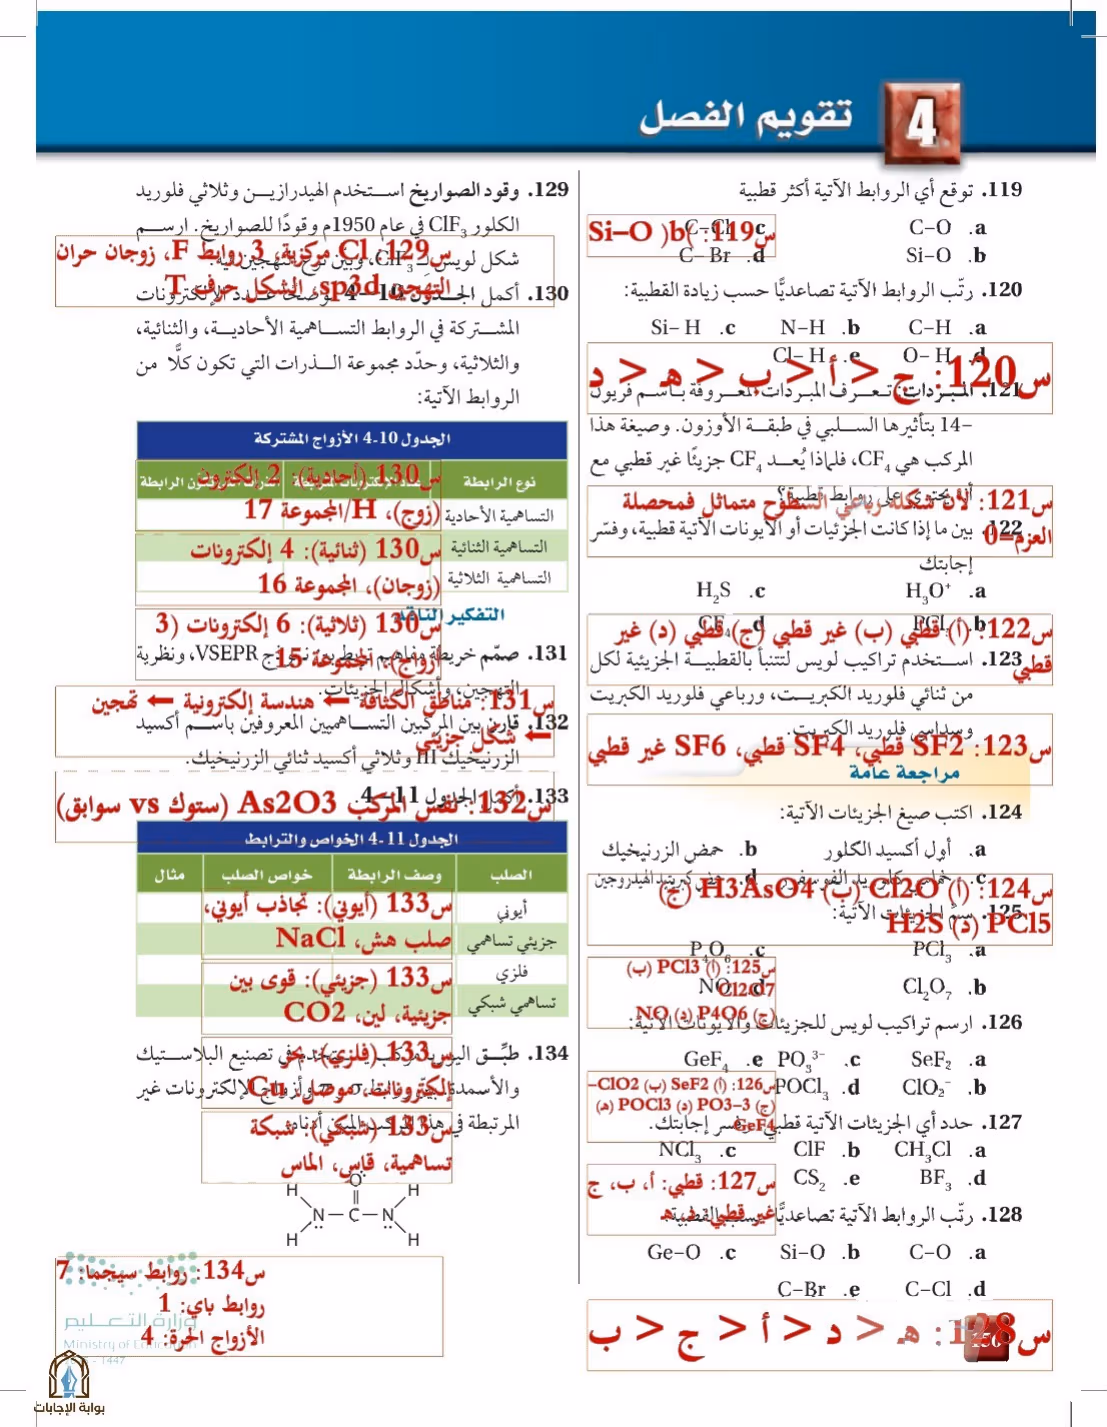 4
تقويم الفصل
119. توقع أي الروابط الآتية أكثر قطبية
a. C-O
c. C-Cl
b. Si-O
d. C-Br
س119: b) Si-O
120. رتّب الروابط الآتية تصاعديًّا حسب زيادة القطبية:
a. C-H
b. N-H
c. Si-H
d. O-H
e. Cl-H
س120: ج < أ < ب < هـ < د
121. المبردات تعرف المبردات المعروفة باسم فريون
-14 بتأثيرها السلبي في طبقة الأوزون. وصيغة هذا
المركب هي CF4، فلماذا يُعد CF4 جزيئًا غير قطبي مع
أن يحتوي على روابط قطبية؟
س121: لأن شكله رباعي السطوح متماثل فمحصلة
العزم=0
122. بين ما إذا كانت الجزئيات أو الأيونات الآتية قطبية، وفسّر
إجابتك
a. H3O+
c. H2S
b. PCl
d. CF4
س122: (أ) قطبي (ب) غير قطبي (ج) قطبي (د) غير
قطبي
123. استخدم تراكيب لويس لتتنبأ بالقطبية الجزيئية لكل
من ثنائي فلوريد الكبريت، ورباعي فلوريد الكبريت
وسداسي فلوريد الكبريت.
س123: SF2 قطبي، SF4 قطبي، SF6 غير قطبي
مراجعة عامة
124. اكتب صيغ الجزيئات الآتية:
a. أول أكسيد الكلور
b. حمض الزرنيخيك
c. خماسي كلوريد الفوسفور
d. حمض كبريتيد الهيدروجين
س124: (أ) Cl2O (ب) H3AsO4 (ج)
PCl5 (د) H2S
125. سمِّ الجزيئات الآتية:
a. PCl3
c. P4O6
b. Cl2O7
d. NO
س125: (أ) PCl3 (ب)
Cl2O7
(ج) P4O6 (د) NO
126. ارسم تراكيب لويس للجزيئات والأيونات الآتية:
a. SeF2
c. PO3 3-
e. GeF4
b. ClO2-
d. POCl3
س126: (أ) SeF2 (ب) ClO2-
(ج) PO3-3 (د) POCl3 (هـ)
GeF4
127. حدد أي الجزيئات الآتية قطبي وفسر إجابتك.
a. CH3Cl
b. ClF
c. NCl3
d. BF3
e. CS2
س127: قطبي: أ، ب، ج
غير قطبي: د، هـ
128. رتّب الروابط الآتية تصاعديًّا حسب القطبية:
a. C-O
b. Si-O
c. Ge-O
d. C-Cl
e. C-Br
س128: هـ < د < أ < ج < ب
129. وقود الصواريخ استخدم الهيدرازين وثلاثي فلوريد
الكلور ClF3 في عام 1950م وقودًا للصواريخ. ارسم
شكل لويس لـ ClF3، وبيّن نوع التهجين فيه.
س129: Cl مركزية، 3 روابط F، زوجان حران
التهجين sp3d، الشكل حرف T
130. أكمل الجدول 10-4 موضحًا عدد الإلكترونات
المشتركة في الروابط التساهمية الأحادية، والثنائية،
والثلاثية، وحدّد مجموعة الذرات التي تكون كلًّا من
الروابط الآتية:
الجدول 10-4 الأزواج المشتركة
نوع الرابطة
التساهمية الأحادية
التساهمية الثنائية
التساهمية الثلاثية
س130 (أحادية): 2 إلكترون
(زوج)، H/المجموعة 17
س130 (ثنائية): 4 إلكترونات
(زوجان)، المجموعة 16
س130 (ثلاثية): 6 إلكترونات (3
أزواج)، المجموعة 15
التفكير الناقد
131. صمّم خريطة مفاهيم تربط بين نموذج VSEPR، ونظرية
التهجين، وأشكال الجزيئات.
س131: مناطق الكثافة ← هندسة إلكترونية ← تهجين
← شكل جزيئي
132. قارن بين المركبين التساهميين المعروفين باسم أكسيد
الزرنيخيك III وثلاثي أكسيد ثنائي الزرنيخيك.
س132: نفس المركب As2O3 (ستوك vs سوابق)
133. أكمل الجدول 11-4.
الجدول 11-4 الخواص والترابط
الصلب
وصف الرابطة
خواص الصلب
مثال
أيوني
جزيئي تساهمي
فلزي
تساهمي شبكي
س133 (أيوني): تجاذب أيوني،
صلب هش، NaCl
س133 (جزيئي): قوى بين
جزيئية، لين، CO2
س133 (فلزي): بحر
إلكترونات، موصل، Cu
س133 (شبكي): شبكة
تساهمية، قاسٍ، الماس
134. طبِّق اليوريا مركب يستخدم في تصنيع البلاستيك
والأسمدة. بيّن روابط σ، π وأزواج الإلكترونات غير
المرتبطة في هذا المركب المبين أدناه.
O
H H
N – C – N
H H
س134: روابط سيجما: 7
روابط باي: 1
الأزواج الحرة: 4
وزارة التعليم
Ministry of Education
1447
150
بوابة الإجابات